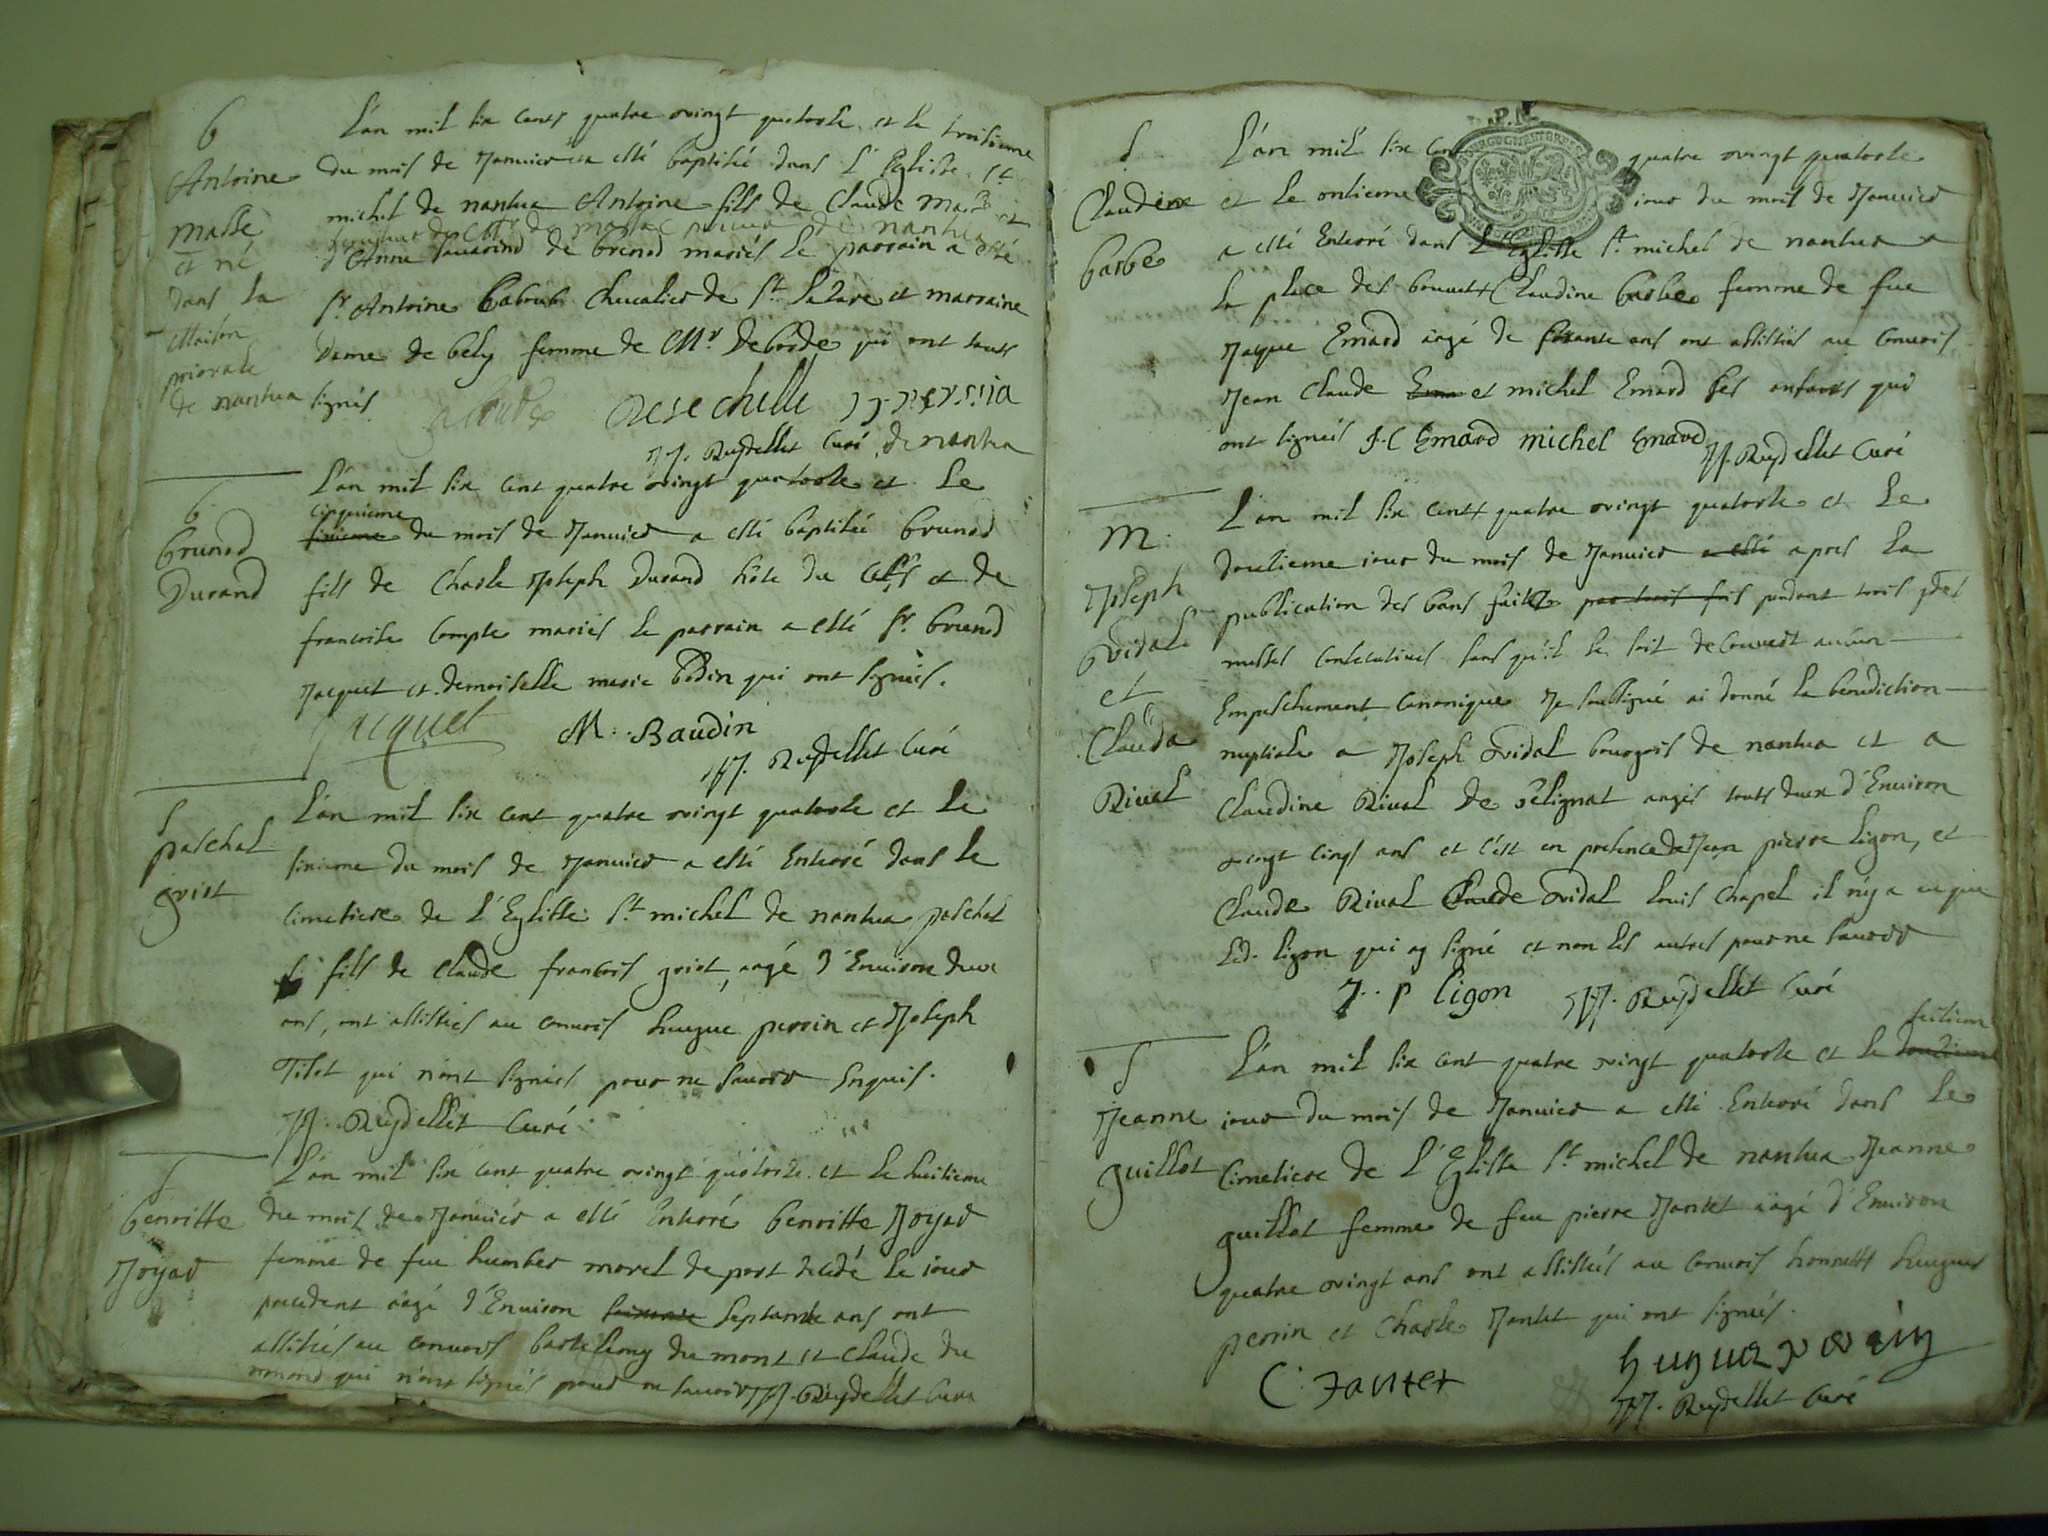 b
Antoine
Masse
et né
dans la
Maison
priorale
de nantua
L'an mil six cents quatre vingt quatorse et le troisieme
du mois de Janvier a esté baptisé dans l'Eglise St
michel de nantua Antoine fils de Claude
de nantua
d'Anne de brenod mariés le parrain a esté
Sr Antoine chevalier de St Lazare et marraine
Dame de bely femme de Mr Deborde qui ont touts
signés
JJ. Reydellet Curé de nantua
b
brunod
Durand
L'an mil six cent quatre vingt quatorse et le
cinquieme
sixieme du mois de Janvier a esté baptisé brunod
fils de Charle Joseph Durand hôte du et de
francoise Compte mariés le parrain a esté Sr. brunod
Jacquet et demoiselle marie bodin qui ont signés.
Jacquet M. Baudin
JJ. Reydellet Curé
S
paschal
griot
L'an mil six cent quatre vingt quatorse et le
sixieme du mois de Janvier a esté Enterré dans le
Cimetiere de l'Eglisse St michel de nantua paschal
fils de Claude francois griot, aagé d'Environ deux
ans, ont assistés au convois hugue perrin et Joseph
Tilet qui n'ont signés pour ne savoir Enquis.
JJ. Reydellet Curé
S
benoitte
Joyar
L'an mil six cent quatre vingt quatorse et le huitieme
du mois de Janvier a esté Enterré benoitte Joyar
femme de feu humber morel de port decedé le jour
precedent aagé d'Environ septante ans ont
assistés au convois bartelemy du mont et claude du
qui n'ont signés pour ne savoir JJ. Reydellet Curé
S
Claudine
barbe
L'an mil six cent quatre vingt quatorse
et le onzieme jour du mois de Janvier
a esté Enterré dans l'Eglisse St michel de nantua a
la place des Claudine barbe femme de feu
Jaque Emard aagé de ans ont assistés au convois
Jean Claude et michel Emard ses enfants qui
ont signés J.C Emard michel Emard JJ. Reydellet Curé
M.
Joseph
vidal
et
Clauda
Rival
L'an mil six cents quatre vingt quatorse et le
douzieme jour du mois de Janvier a esté apres la
publication des bans faite par trois fois pendant trois
messes consecutives sans qu'il se soit decouvert aucun
Empeschement canonique Je soussigné ai donné la benediction
nuptiale a Joseph vidal bourgois de nantua et a
Claudine Rival de selignat aagés touts deux d'Environ
vingt cinq ans et c'est en presence de Jean pierre ligon, et
Claude Rival Claude vidal louis Chapel il n'y a eu que
led. ligon qui ay signé et non les autres pour ne savoir
J. p ligon JJ. Reydellet Curé
S
Jeanne
guillot
L'an mil six cent quatre vingt quatorse et le douzieme
jour du mois de Janvier a esté Enterré dans le
Cimetiere de l'Eglisse St michel de nantua Jeanne
guillot femme de feu pierre Jantet aagé d'Environ
quatre vingt ans ont assistés au convois honnettes hugues
perrin et Charle Jantet qui ont signés.
C. Jantet hugue perrin
JJ. Reydellet Curé